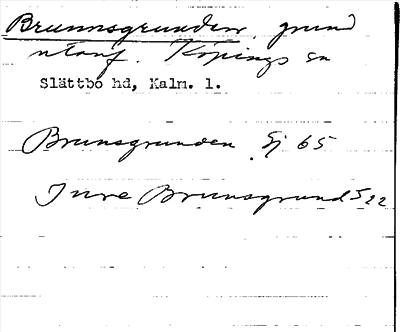 Brunnsgrunden, grund
utanf. Köpings sn
Slättbo hd, Kalm. l.
Brunsgrunden Sj 65
Inre Brunsgrund S 22